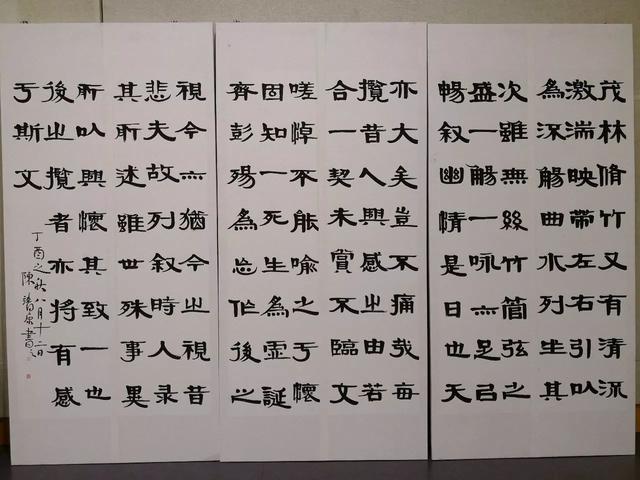 茂林脩竹又有清流
激湍映帶左右引以
為流觴曲水列坐其
次雖無絲竹管弦之
盛一觴一咏亦足以
暢叙幽情是日也天
亦大矣豈不痛哉每
攬昔人興感之由若
合一契未嘗不臨文
嗟悼不能喻之于懷
固知一死生為虛誕
齊彭殤為妄作後之
視今亦猶今之視昔
悲夫故列叙時人录
其所述雖世殊事異
所以興懷其致一也
後之攬者亦將有感
于斯文
丁酉之秋八月十二日
陳